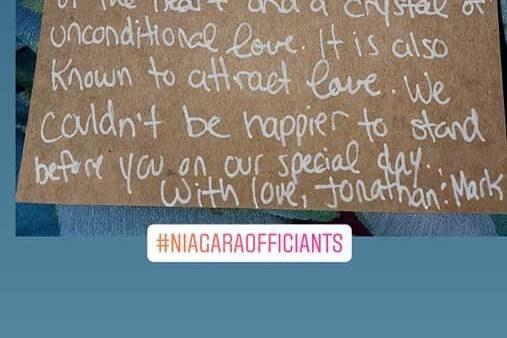 of the heart and a crystal of
unconditional love. It is also
known to attract love. We
couldn't be happier to stand
before you on our special day.
With love, Jonathan & Mark
#NIAGARAOFFICIANTS